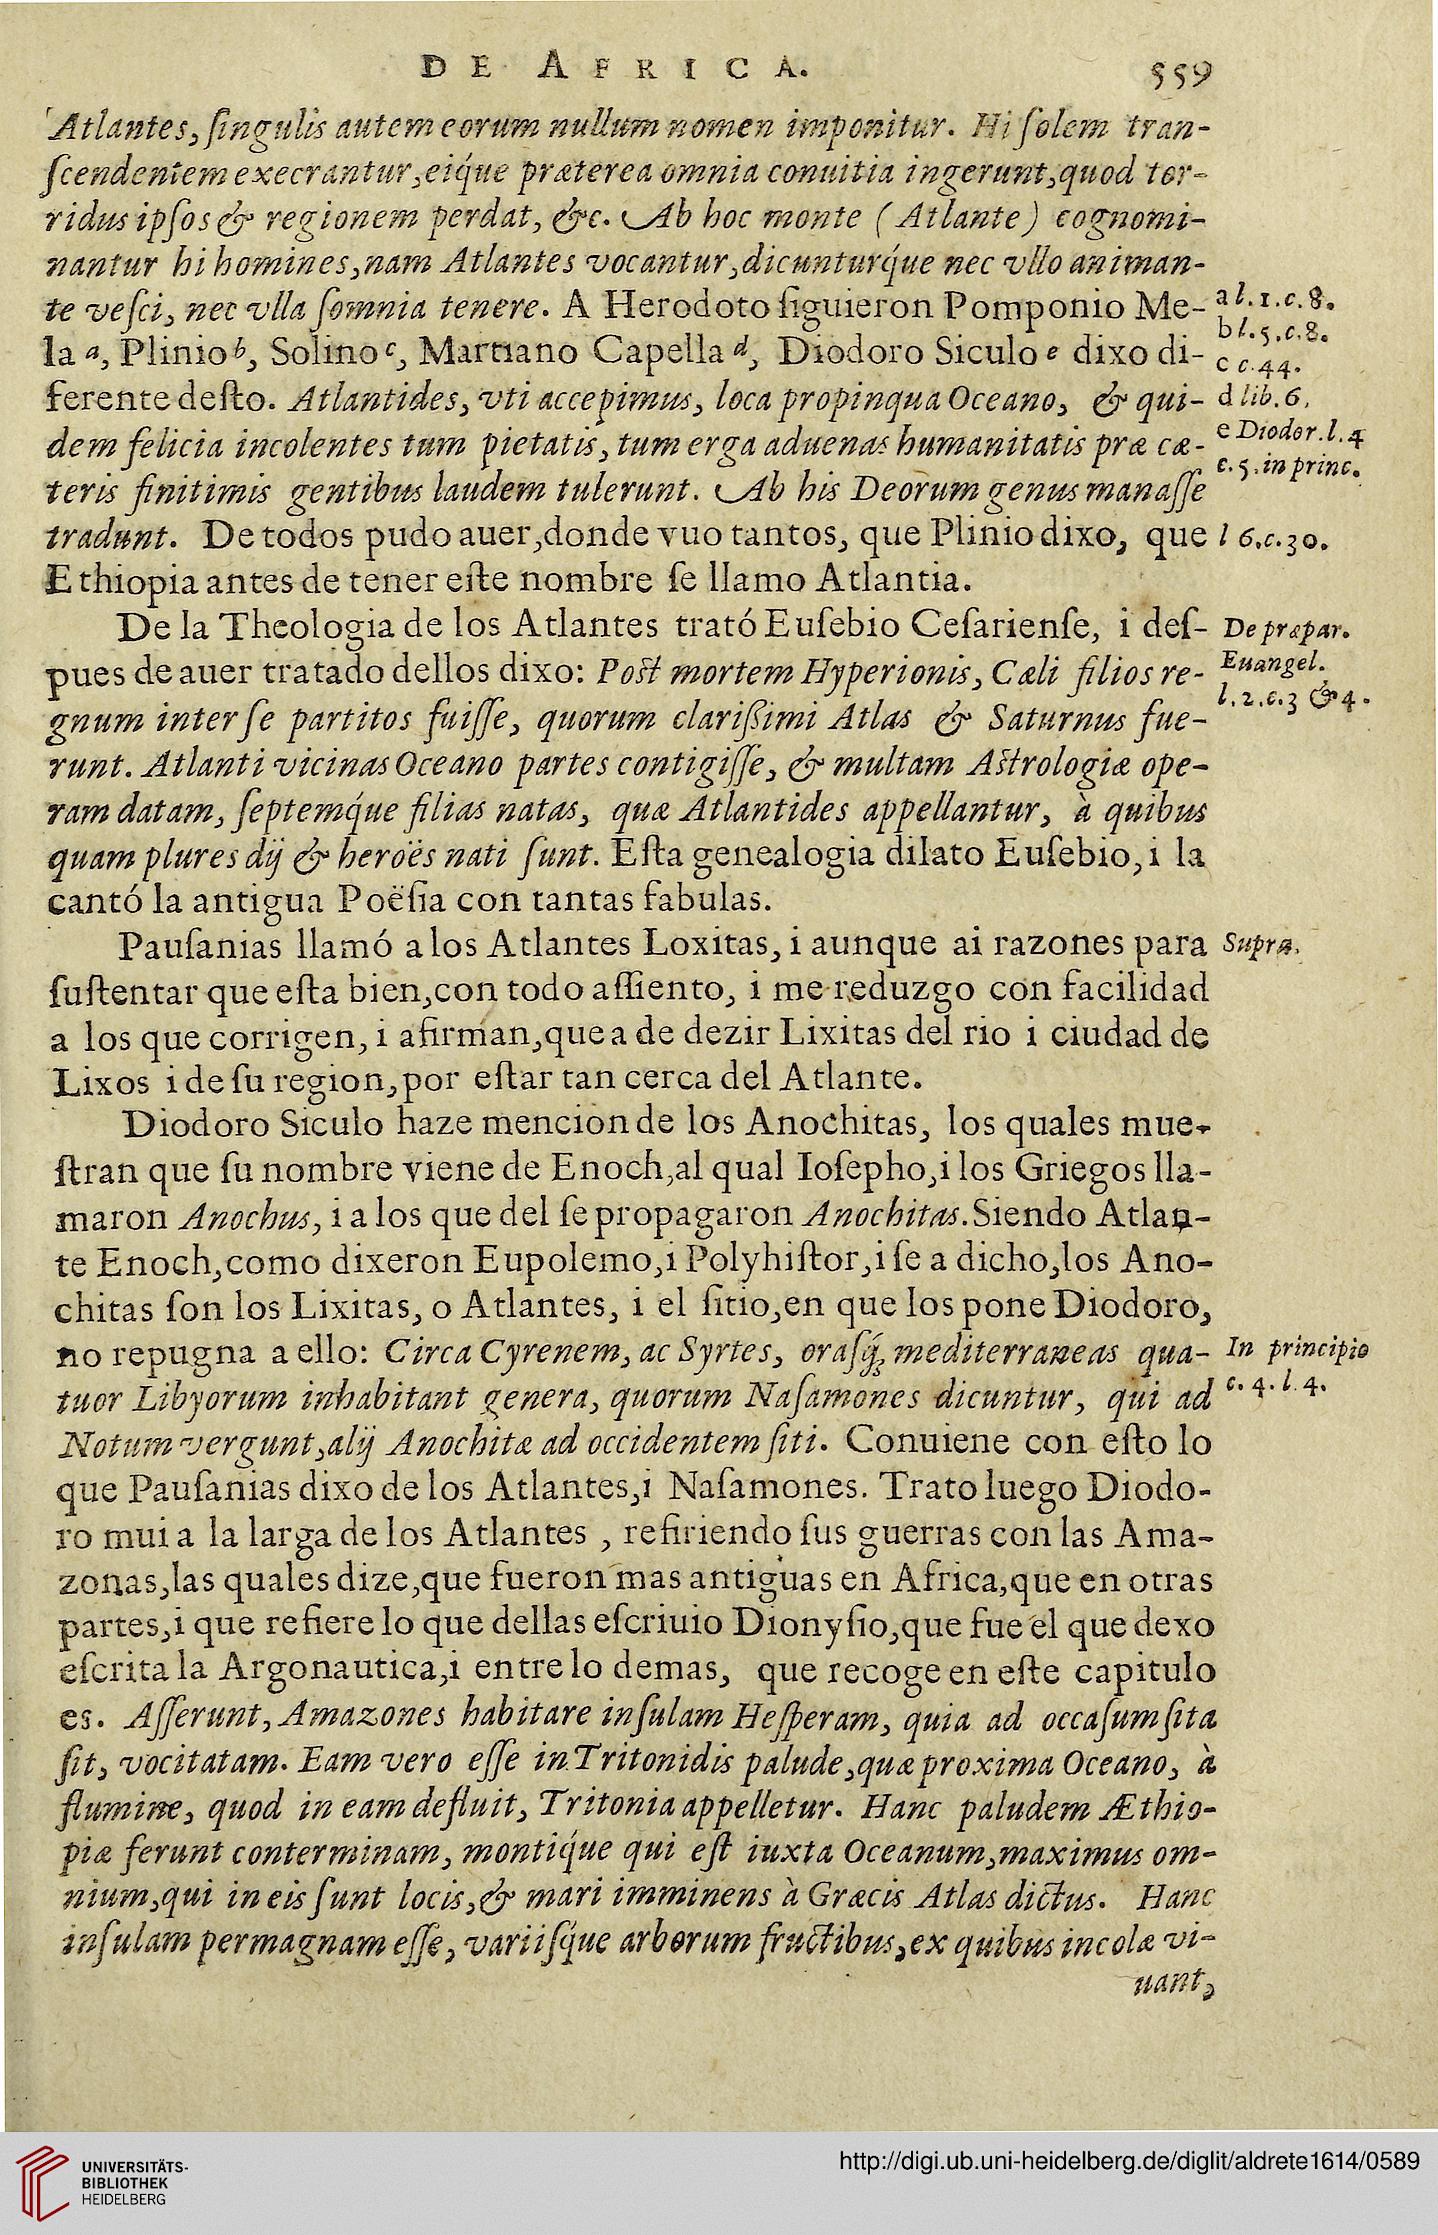 DE AFRICA. 559
Atlantes, ſingulis autem eorum nullum nomen imponitur. Hi ſolem tran-
ſcendentem execrantur, eiq́ue præterea omnia conuitia ingerunt, quod tor-
ridus ipſos & regionem perdat, &c. Ab hoc monte (Atlante) cognomi-
nantur hi homines, nam Atlantes vocantur, dicunturq́ue nec vllo animan-
te veſci, nec vlla ſomnia tenere. A Herodoto ſiguieron Pomponio Me-
a l.1.c.8.
la a, Plinio b, Solino c, Martiano Capella d, Diodoro Siculo e dixo di-
b l.5.c.8.
c c.44.
ferente deſto. Atlantides, vti accepimus, loca propinqua Oceano, & qui-
d lib.6.
dem felicia incolentes tum pietatis, tum erga aduenas humanitatis præ cæ-
e Diodor.l.4
teris finitimis gentibus laudem tulerunt. Ab his Deorum genus manaſſe
c.5.in princ.
tradunt. De todos pudo auer, donde vuo tantos, que Plinio dixo, que
l 6.c.30.
Ethiopia antes de tener eſte nombre ſe llamo Atlantia.
De la Theologia de los Atlantes trató Euſebio Ceſarienſe, i deſ-
De præpar.
pues de auer tratado dellos dixo: Poſt mortem Hyperionis, Cæli filios re-
Euangel.
gnum inter ſe partitos fuiſſe, quorum clarißimi Atlas & Saturnus fue-
l.2.c.3 & 4.
runt. Atlanti vicinas Oceano partes contigiſſe, & multam Aſtrologiæ ope-
ram datam, ſeptemq́ue filias natas, quæ Atlantides appellantur, à quibus
quam plures dij & heroës nati ſunt. Eſta genealogia dilato Euſebio, i la
cantó la antigua Poëſia con tantas fabulas.
Pauſanias llamó a los Atlantes Loxitas, i aunque ai razones para
Supra.
ſuſtentar que eſta bien, con todo aſſiento, i me reduzgo con facilidad
a los que corrigen, i afirman, que a de dezir Lixitas del rio i ciudad de
Lixos i de ſu region, por eſtar tan cerca del Atlante.
Diodoro Siculo haze mencion de los Anochitas, los quales mue-
ſtran que ſu nombre viene de Enoch, al qual Ioſepho, i los Griegos lla-
maron Anochus, i a los que del ſe propagaron Anochitas. Siendo Atlan-
te Enoch, como dixeron Eupolemo, i Polyhiſtor, i ſe a dicho, los Ano-
chitas ſon los Lixitas, o Atlantes, i el ſitio, en que los pone Diodoro,
no repugna a ello: Circa Cyrenem, ac Syrtes, oraſq́; mediterraneas qua-
In principio
tuor Libyorum inhabitant genera, quorum Naſamones dicuntur, qui ad
c.4.l.4.
Notum vergunt, alij Anochitæ ad occidentem ſiti. Conuiene con eſto lo
que Pauſanias dixo de los Atlantes, i Naſamones. Trato luego Diodo-
ro mui a la larga de los Atlantes, refiriendo ſus guerras con las Ama-
zonas, las quales dize, que fueron mas antiguas en Africa, que en otras
partes, i que refiere lo que dellas eſcriuio Dionyſio, que fue el que dexo
eſcrita la Argonautica, i entre lo demas, que recoge en eſte capitulo
es. Aſſerunt, Amazones habitare inſulam Heſperam, quia ad occaſum ſita
ſit, vocitatam. Eam vero eſſe in Tritonidis palude, quæ proxima Oceano, à
flumine, quod in eam defluit, Tritonia appelletur. Hanc paludem Æthio-
piæ ferunt conterminam, montiq́ue qui eſt iuxta Oceanum, maximus om-
nium, qui in eis ſunt locis, & mari imminens à Græcis Atlas dictus. Hanc
inſulam permagnam eſſe, variiſq́ue arborum fructibus, ex quibus incolæ vi-
uant,
UNIVERSITÄTS-
BIBLIOTHEK
HEIDELBERG
http://digi.ub.uni-heidelberg.de/diglit/aldrete1614/0589